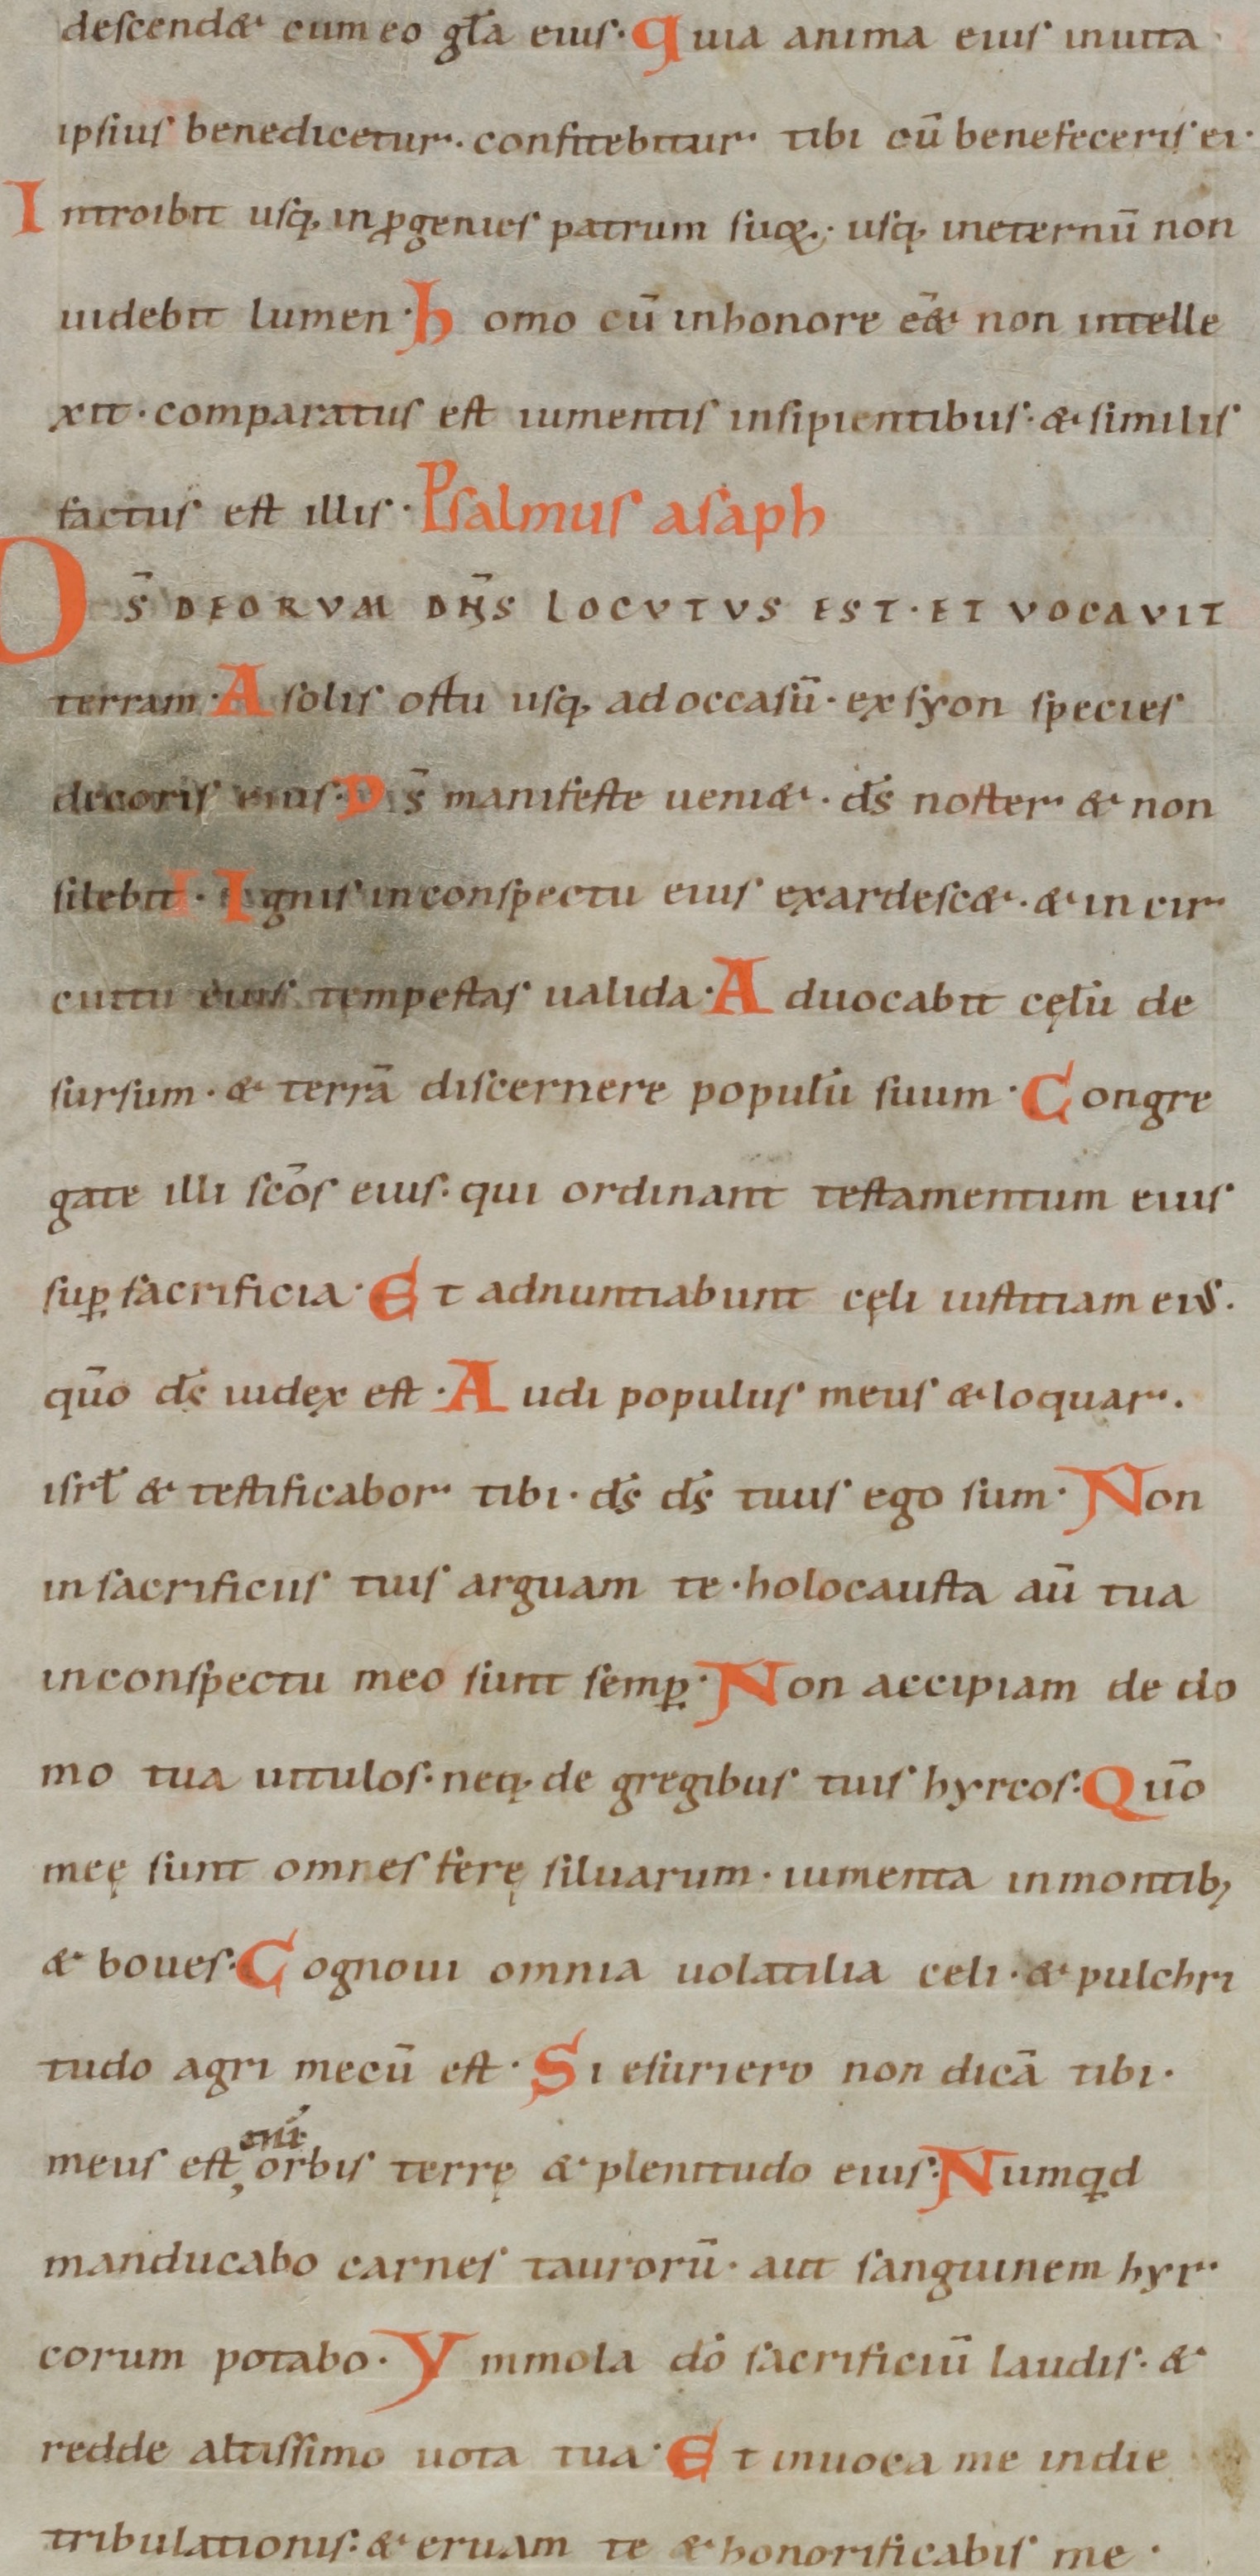 descend& cum eo gl̄a eius. quia anima eius inuita
ipsius benedicetur. confitebitur tibi cū benefeceris ei.
Introibit usq; in ꝓgenies patrum suoꝝ. usq; ineternū non
uidebit lumen. homo cū inhonore ēe& non intelle
xit. comparatus est iumentis insipientibus. & similis
factus est illis. Psalmus asaph
DS̄ DEORVM DN̄S LOCVTVS EST. ET VOCAVIT
terram. A solis ortu usq; ad occasū. ex syon species
decoris eius. Ds̄ manifeste ueni&. ds̄ noster & non
silebit. Ignis inconspectu eius exardesc&. & in cir
cuitu eius tempestas ualida. Aduocabit cęlū de
sursum. & terrā discernere populū suum. Congre
gate illi sc̄os eius. qui ordinant testamentum eius
suꝑ sacrificia. Et adnuntiabunt cęli iustitiam eius.
quō ds̄ iudex est. Audi populus meus & loquar.
isrl̄ & testificabor tibi. ds̄ ds̄ tuus ego sum. Non
in sacrificiis tuis arguam te. holocausta aū tua
inconspectu meo sunt semꝑ. Non accipiam de do
mo tua uitulos. neq; de gregibus tuis hyrcos. Quō
meę sunt omnes ferę siluarum. iumenta inmontib;
& boues. Cognoui omnia uolatilia celi. & pulchri
tudo agri mecū est. Si esuriero non dicā tibi.
meus est, enī orbis terrę & plenitudo eius. Numqͥd
manducabo carnes taurorū. aut sanguinem hyr
corum potabo. Ymmola dō sacrificiū laudis. &
redde altissimo uota tua. Et inuoca me indie
tribulationis. & eruam te & honorificabis me.